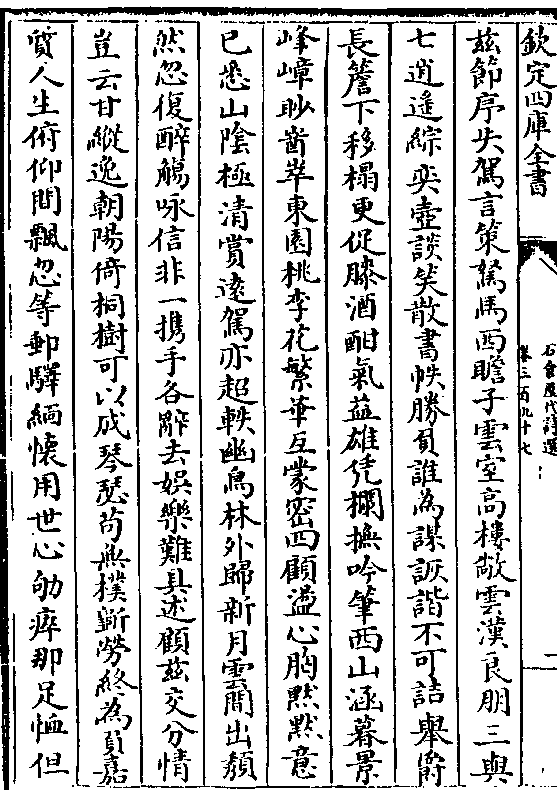 欽定四庫全書
石倉歷代詩選
卷三百九十七
兹節序失駕言策駑馬西瞻子雲室高樓敞雲漢良朋三與
七逍遥綜奕壺談笑散書帙勝負誰為謀詼諧不可詰舉爵
長簷下移榻更促膝酒酣氣益雄凭欄撫吟筆西山涵暮景
峰嶂眇崷崒東園桃李花繁華互蒙密四顧溢心胸黙黙意
已悉山陰極清賞遠駕亦超軼幽鳥林外歸新月雲間出頽
然忽復醉觴咏信非一携手各辭去娱樂難具述顧兹交分情
豈云甘縱逸朝陽倚桐樹可以成琴瑟苟無樸斵勞終為負嘉
質人生俯仰間飄忽等郵驛緬懷用世心劬瘁那足恤但